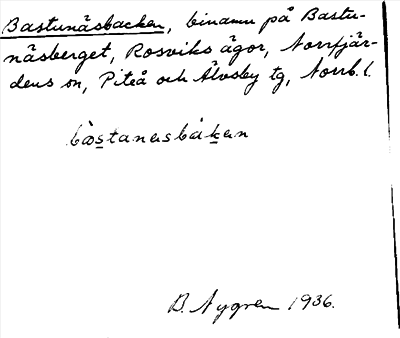 Bastunäsbacken, binamn på Bastu-
näsberget, Rosviks ägor, Norrfjär-
dens sn, Piteå och Älvsby tg, Norrb. l.
bàstanesbákan
B. Nygren 1936.